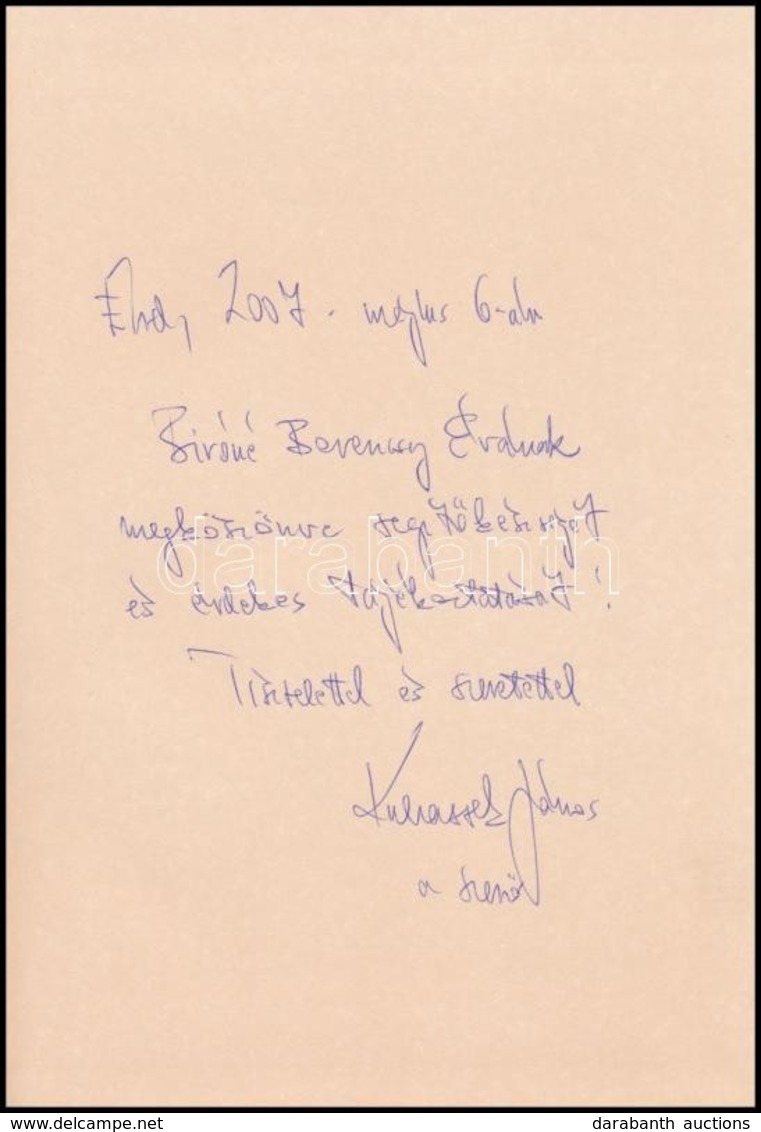 Érd, 2007. május 6-án
Biróné Évának
megköszönve segítőkészségét
és érdekes tájékoztatását!
Tisztelettel és szeretettel
Kubassek János
a szerző
darabanth
www.delcampe.net
darabanth auctions